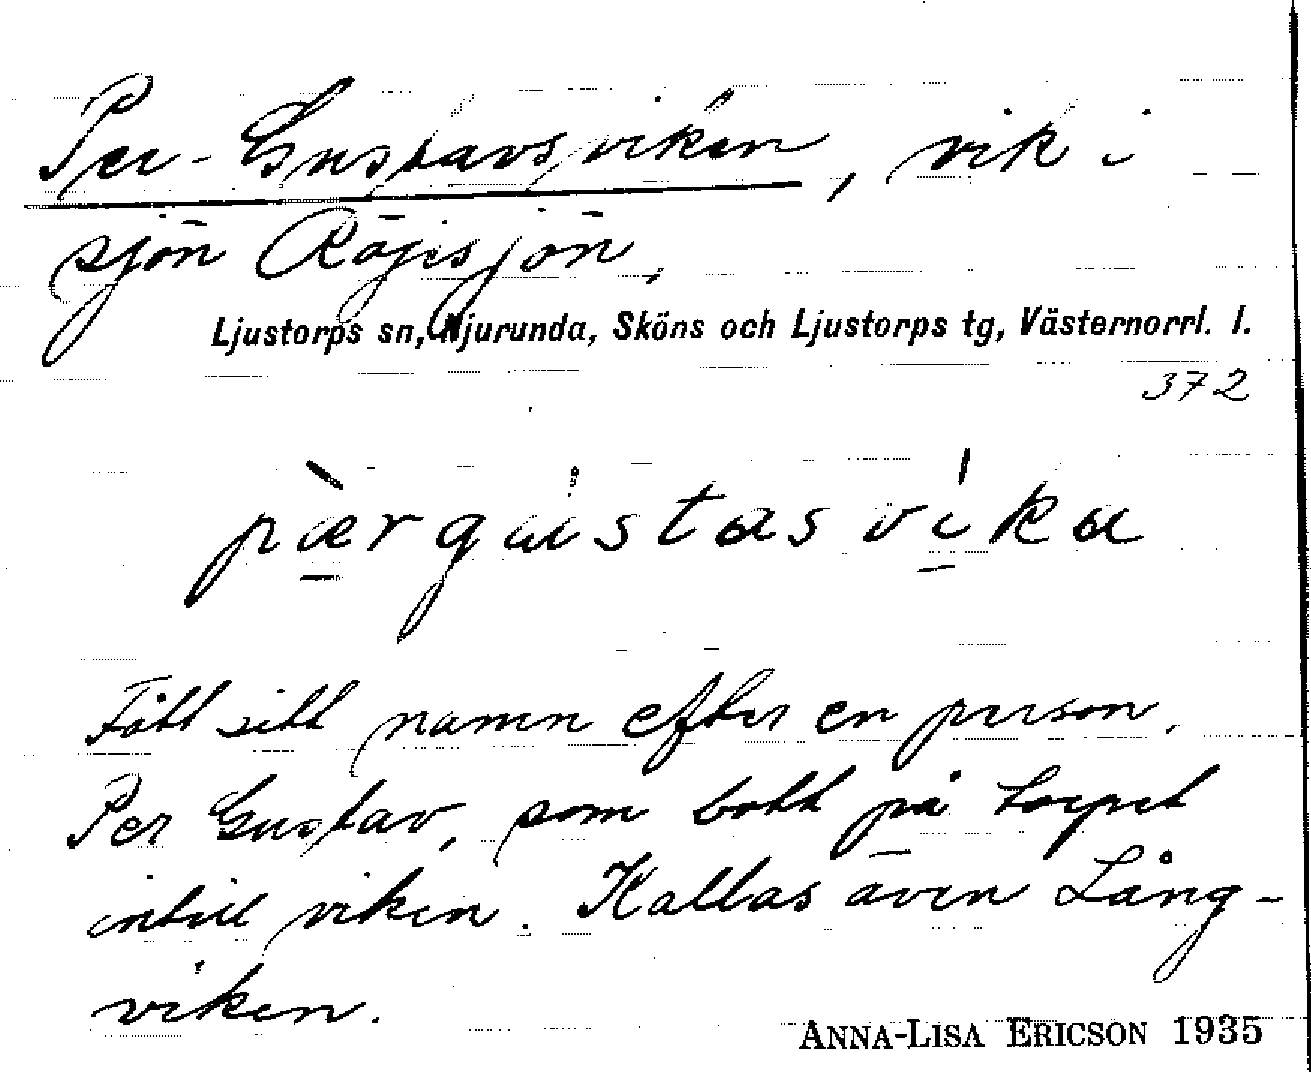 Per-Gustavsviken, vik i
sjön Röjesjön,
Ljustorps sn, Njurunda, Sköns och Ljustorps tg, Västernorrl. l.
372
pærgustasvika
Fått sitt namn efter en person,
Per Gustav, som bott på torpet
intill viken. Kallas även Lång-
viken.
ANNA-LISA ERICSON 1935